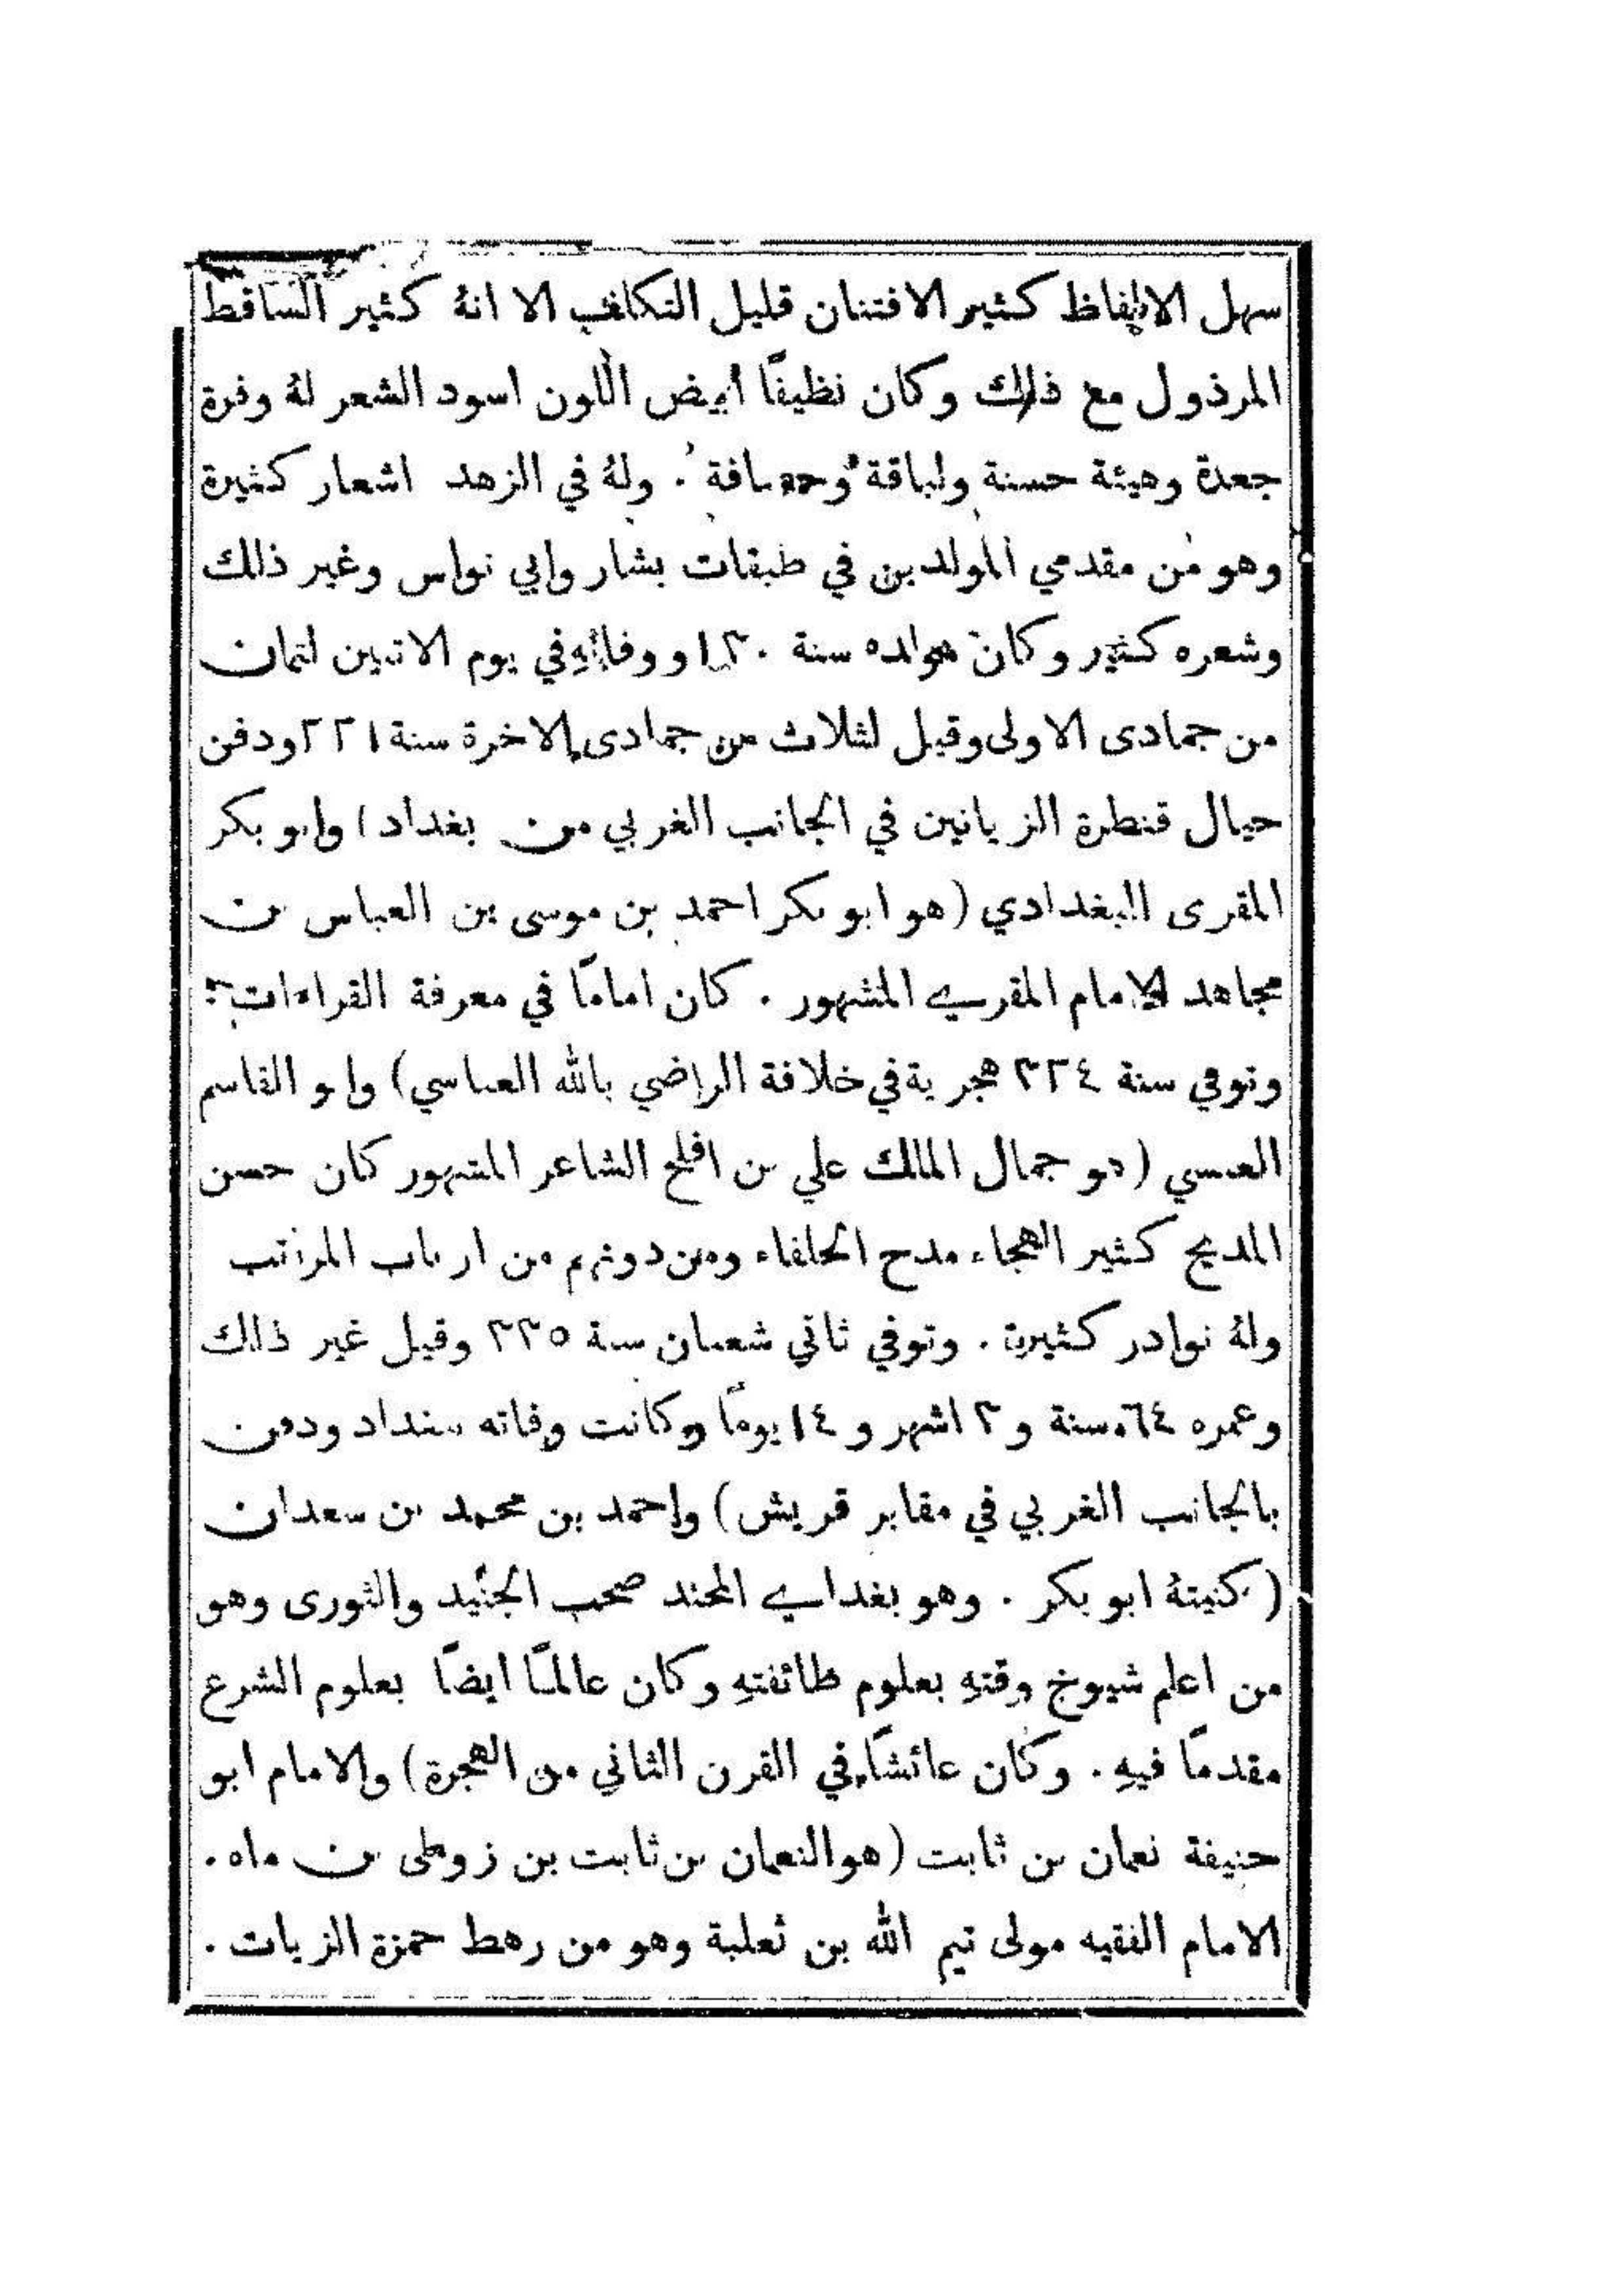 سهل الالفاظ كثير الافتنان قليل التكلف الا انهُ كثير الساقط
المرذول مع ذلك وكان نظيفًا أبيض اللون اسود الشعر لهُ وفرة
جعدة وهيئة حسنة ولباقة وحصافة . ولهُ في الزهد اشعار كثيرة
وهو من مقدمي المولدين في طبقات بشار وابي نواس وغير ذلك
وشعره كثير وكان مولده سنة ١٣٠ ووفاتهِ في يوم الاثنين لثمان
من جمادى الاولى وقيل لثلاث من جمادى الاخرة سنة ٢٢١ ودفن
حيال قنطرة الزياتين في الجانب الغربي من بغداد) وابو بكر
المقرى البغدادي (هو ابو بكر احمد بن موسى بن العباس بن
مجاهد الامام المقري المشهور . كان امامًا في معرفة القراءات
وتوفي سنة ٣٢٤ هجرية في خلافة الراضي بالله العباسي) وابو القاسم
العبسي (هو جمال الملك علي بن افلح الشاعر المشهور كان حسن
المديح كثير الهجاء مدح الخلفاء ومن دونهم من ارباب المراتب
ولهُ نوادر كثيرة . وتوفي ثاني شعبان سنة ٣٣٥ وقيل غير ذلك
وعمره ٦٤ سنة و ٣ اشهر و ١٤ يومًا وكانت وفاته ببغداد ودفن
بالجانب الغربي في مقابر قريش) واحمد بن محمد بن سعدان
(كنيتهُ ابو بكر . وهو بغدادي المحتد صحب الجنيد والثورى وهو
من اعلم شيوخ وقتهِ بعلوم طائفتهِ وكان عالمًا ايضًا بعلوم الشرع
مقدمًا فيهِ . وكان عائشًا في القرن الثاني من الهجرة) والامام ابو
حنيفة نعمان بن ثابت (هو النعمان بن ثابت بن زوطى بن ماه .
الامام الفقيه مولى تيم الله بن ثعلبة وهو من رهط حمزة الزيات .